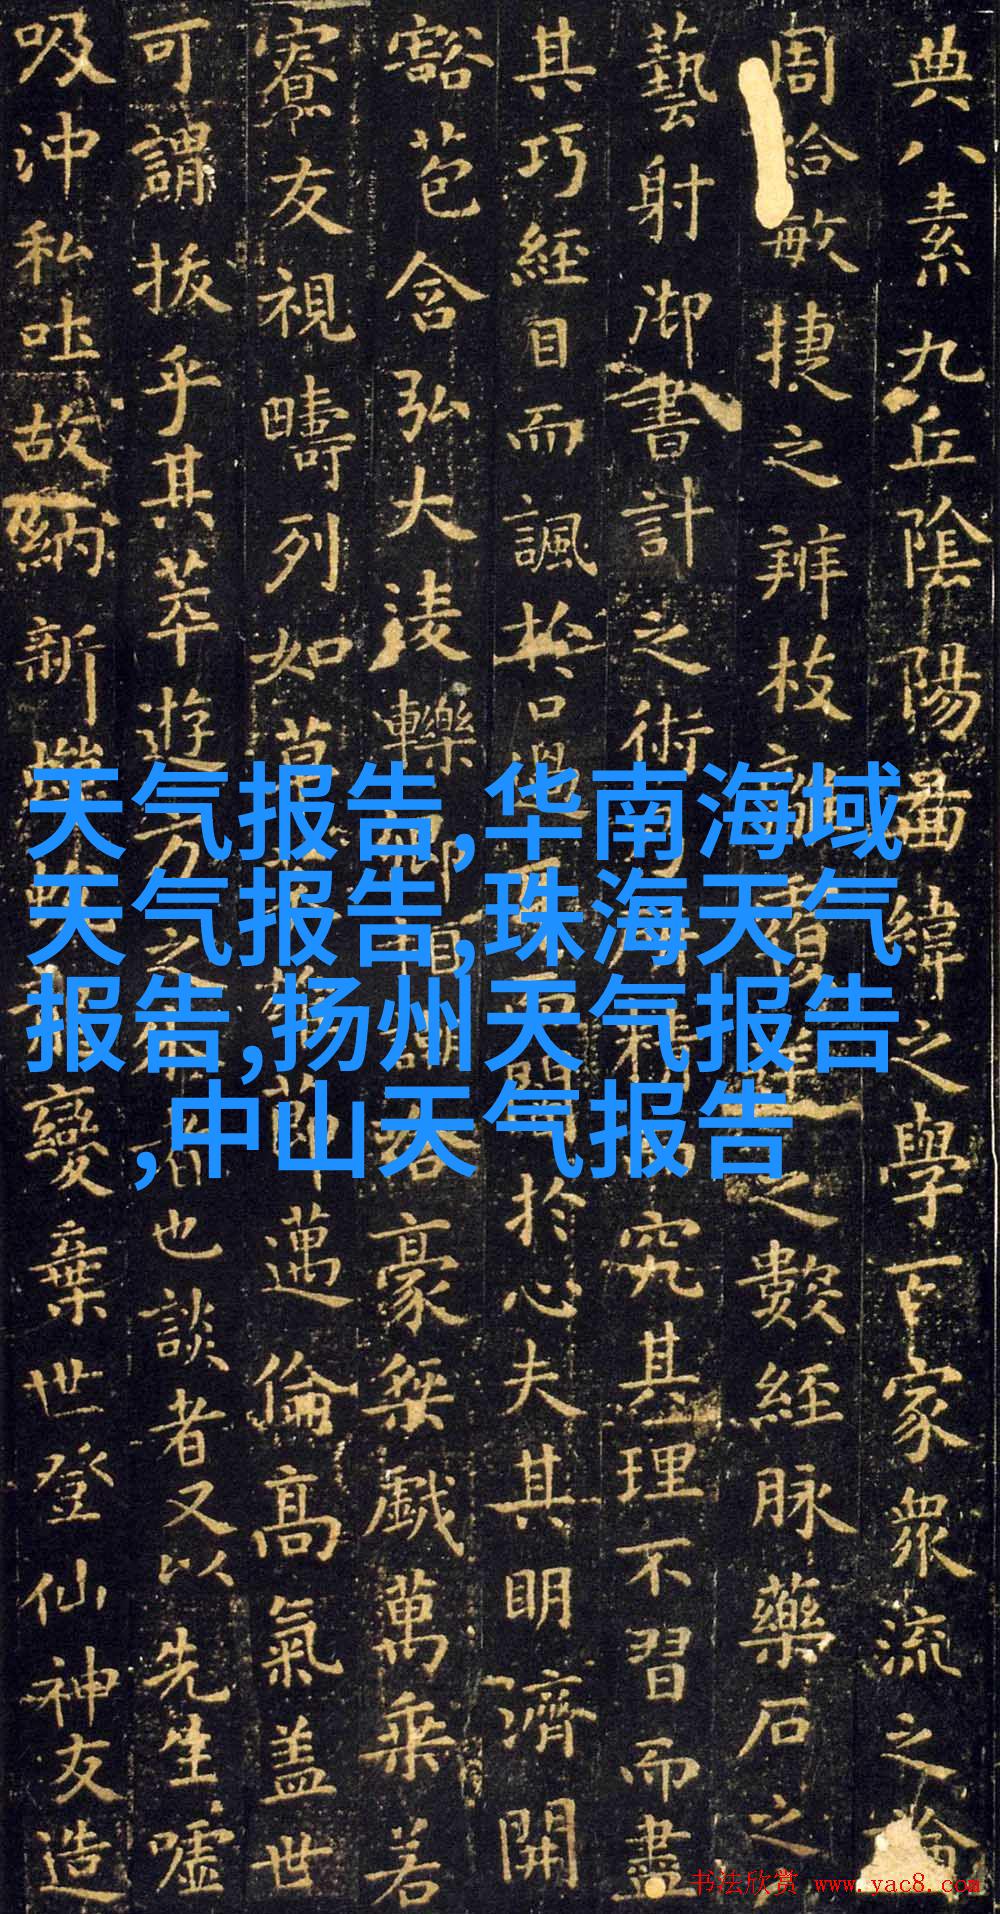 典八素九丘陰陽圖緯之學百家衆流之論
周給敏捷之辨枝離覆逆之數經脉藥石之
藝射御書計之術究其理不習而盡
其巧經目而諷於口過耳而闇於心夫其明濟開
豁苞含弘大淩轢卿相豪桀戲萬乘若
寮友視疇列如草節邁倫高氣盖世
可謂拔乎其萃遊方之也談者又以先生噓
吸沖和吐故納新變棄世登仙神友造
天气报告,华南海域
天气报告,珠海天气
报告,扬州天气报告
,中山天气报告
书法欣赏 www.yac8.com